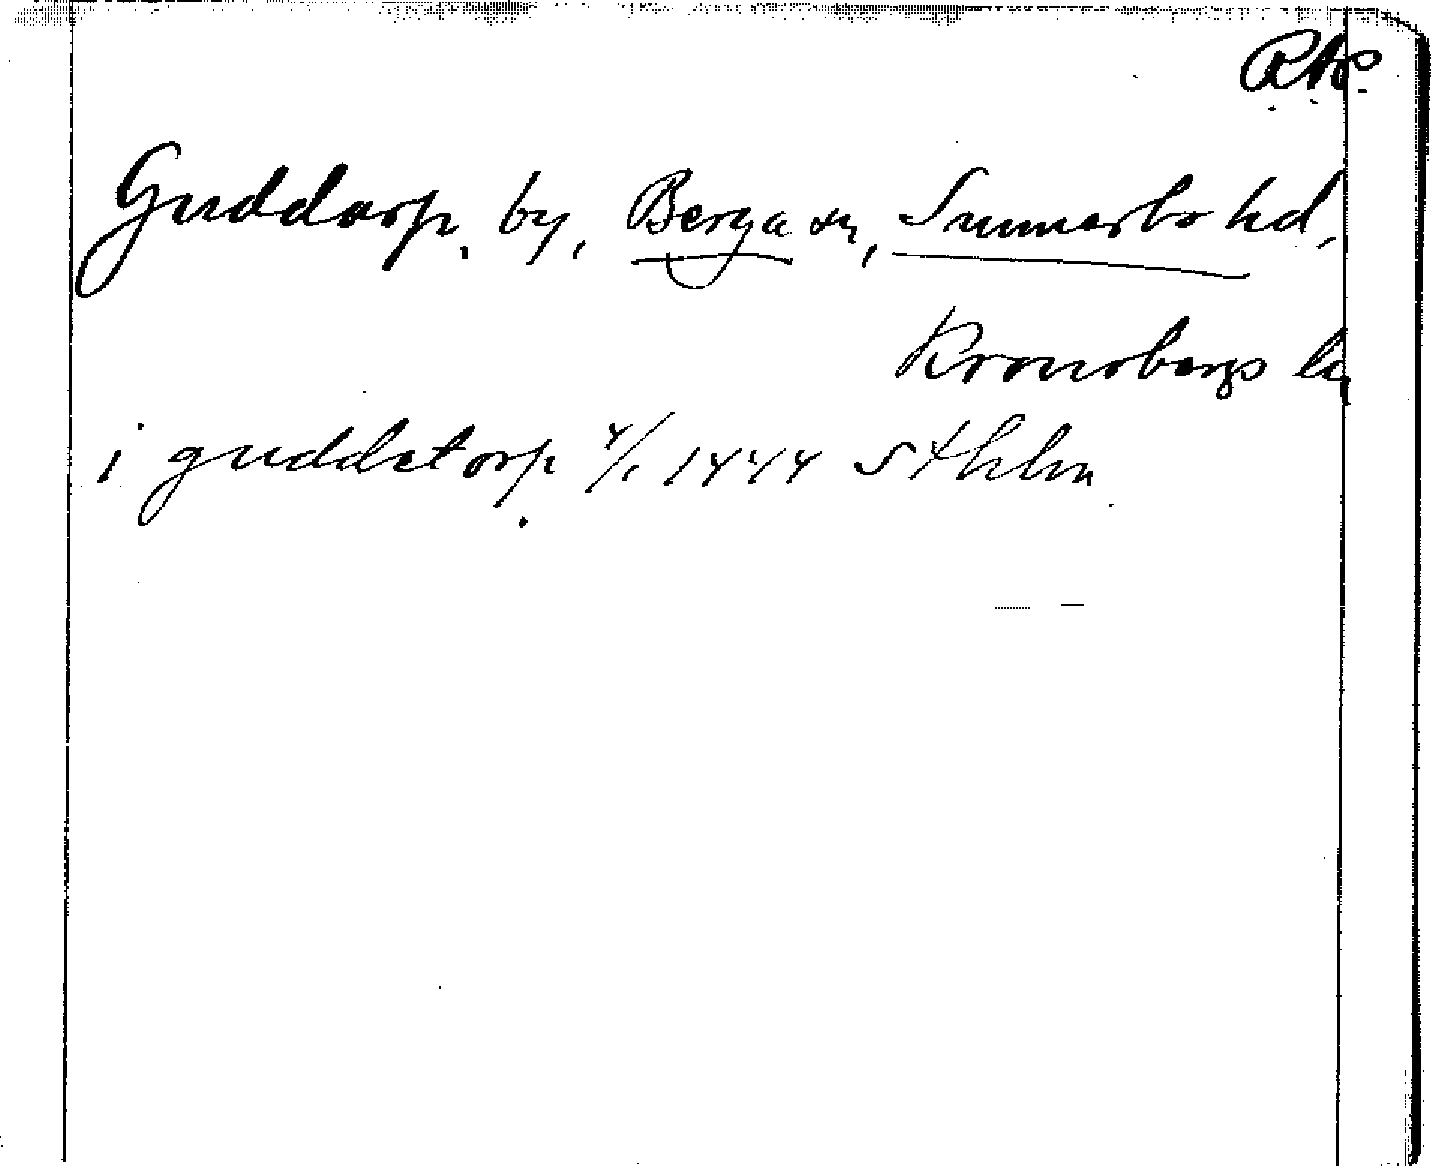 RAp.
Guddarp, by, Berga sn, Sunnerbo hd,
Kronobergs län
i guddetorp 4/1 1444 Sthlm